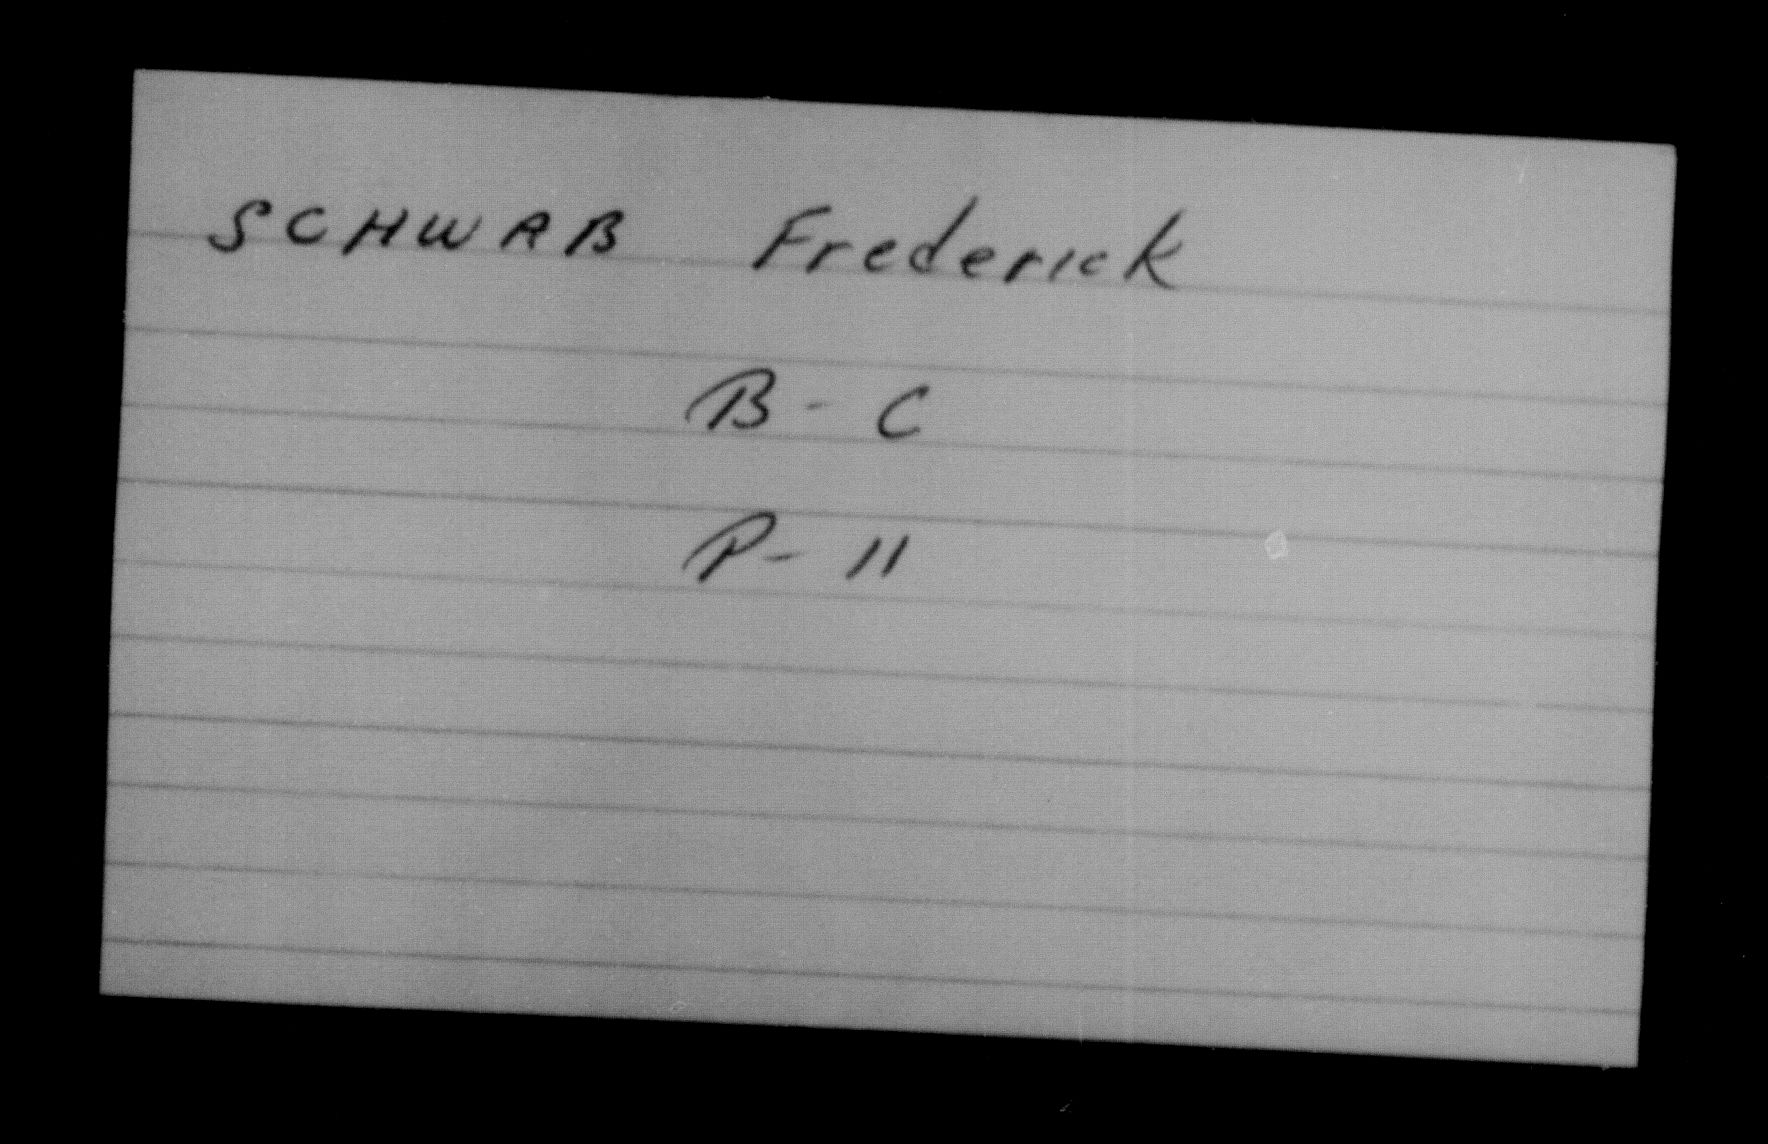 SCHWAB Frederick
B - C
P - 11